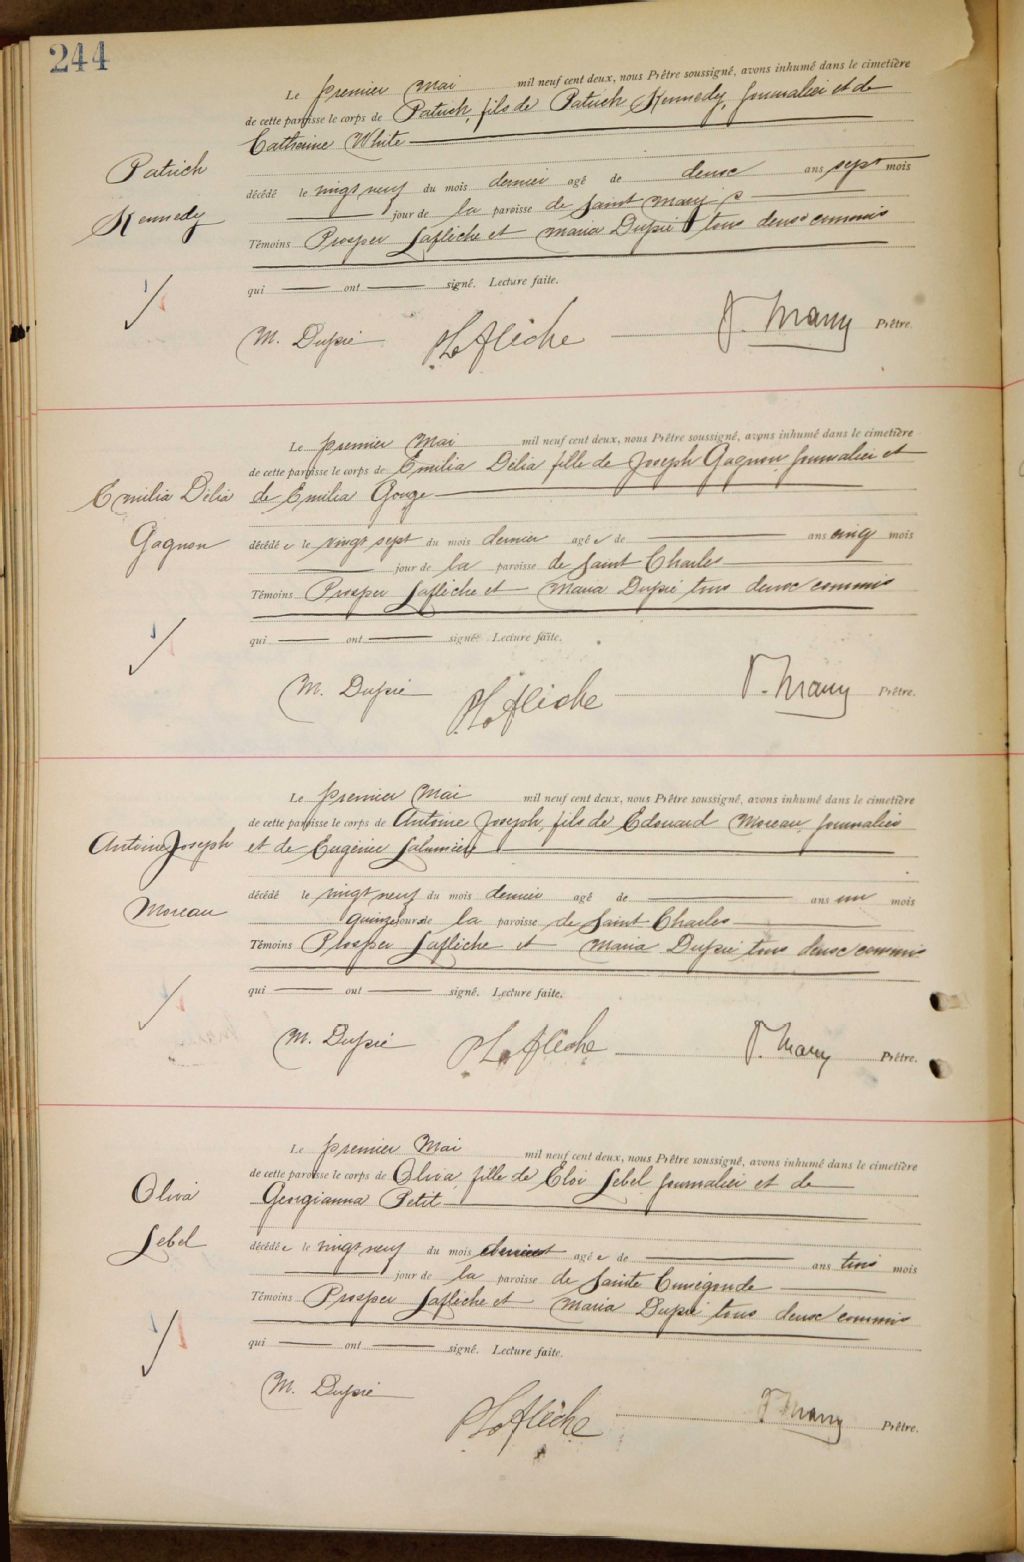 244
Le premier Mai mil neuf cent deux, nous Prêtre soussigné, avons inhumé dans le cimetière
de cette paroisse le corps de Patrick, fils de Patrick Kennedy, journalier et de
Catherine White
Patrick
Kennedy
décédé le vingt neuf du mois dernier agé de deux ans sept mois
jour de la paroisse de Saint Mary's
Témoins Prosper Laflèche et Maria Dupré tous deux commis
qui ont signé. Lecture faite.
M. Dupré PLaflèche Prêtre.
Le premier Mai mil neuf cent deux, nous Prêtre soussigné, avons inhumé dans le cimetière
de cette paroisse le corps de Emilia Délia fille de Joseph Gagnon journalier et
Emilia Délia
Gagnon
de Emilia Gouge
décédée le vingt sept du mois dernier agée de ans cinq mois
jour de la paroisse de Saint Charles
Témoins Prosper Laflèche et Maria Dupré tous deux commis
qui ont signé. Lecture faite.
M. Dupré PLaflèche Prêtre.
Le premier Mai mil neuf cent deux, nous Prêtre soussigné, avons inhumé dans le cimetière
de cette paroisse le corps de Antoine Joseph, fils de Edouard Moreau, journalier
Antoine Joseph
Moreau
et de Eugénie Lalumière
décédé le vingt neuf du mois dernier agé de ans un mois
quinze jours de la paroisse de Saint Charles
Témoins Prosper Laflèche et Maria Dupré tous deux commis
qui ont signé. Lecture faite.
M. Dupré PLaflèche Prêtre.
Le premier Mai mil neuf cent deux, nous Prêtre soussigné, avons inhumé dans le cimetière
de cette paroisse le corps de Oliva, fille de Eloi Lebel journalier et de
Oliva
Lebel
Georgianna Petit
décédée le vingt neuf du mois dernier agée de ans trois mois
jour de la paroisse de Sainte Cunégonde
Témoins Prosper Laflèche et Maria Dupré tous deux commis
qui ont signé. Lecture faite.
M. Dupré PLaflèche Prêtre.